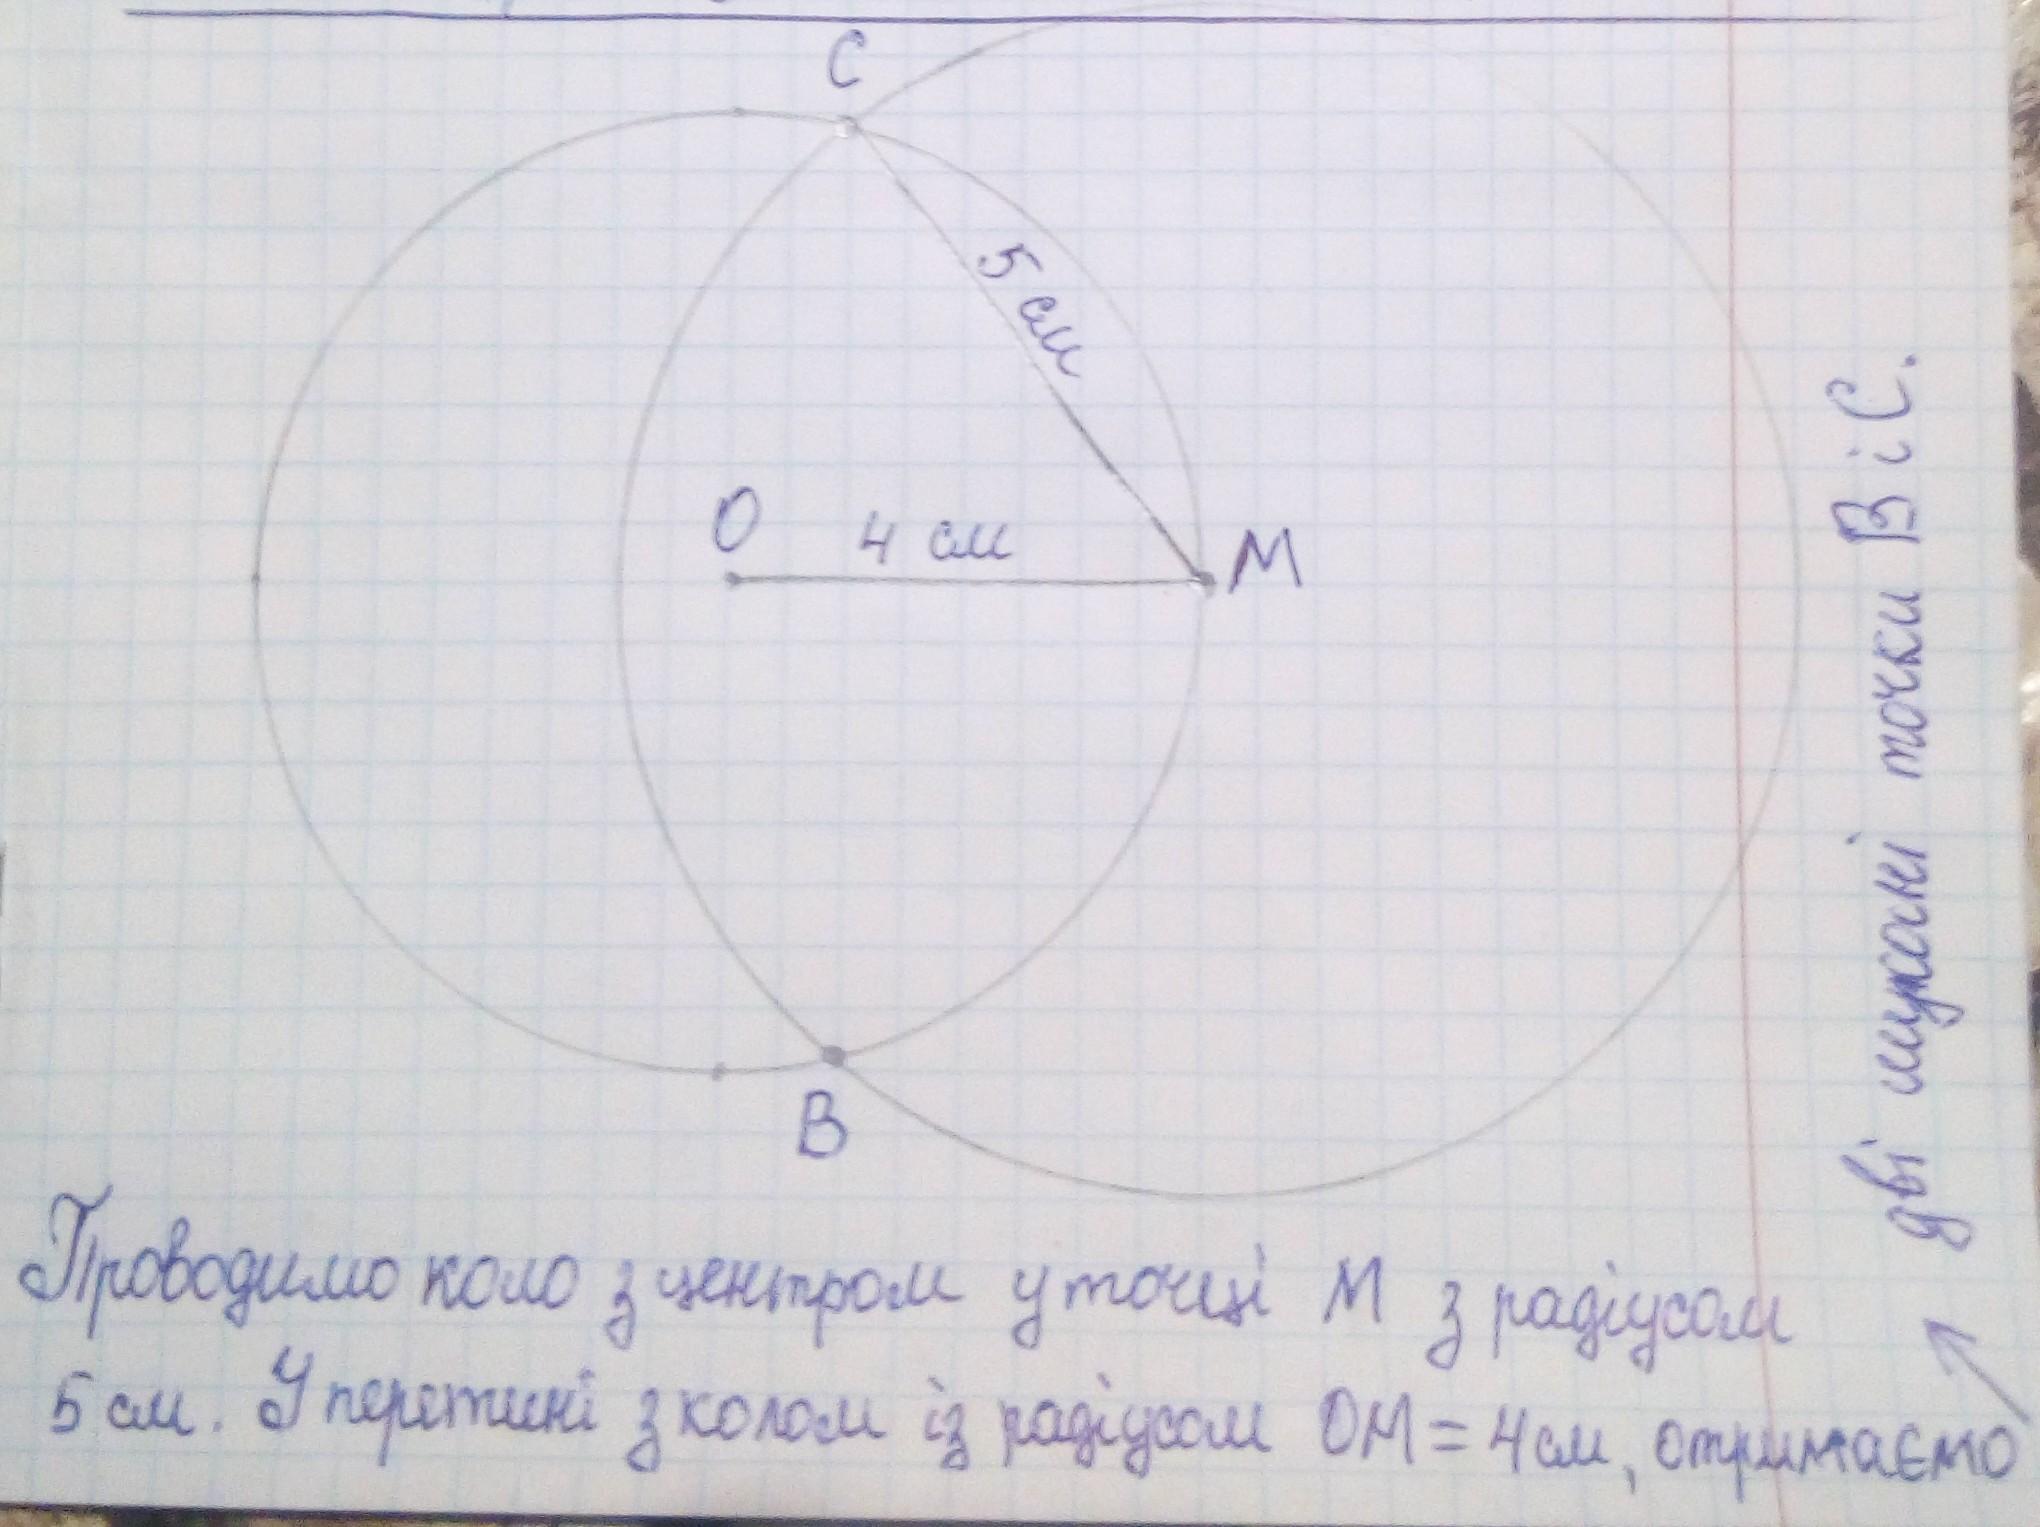 C
5 см
O
4 см
M
B
Проводимо коло з центром у точці M з радіусом
5 см. У перетині з колом із радіусом OM = 4 см, отримаємо
дві шукані точки B і C.